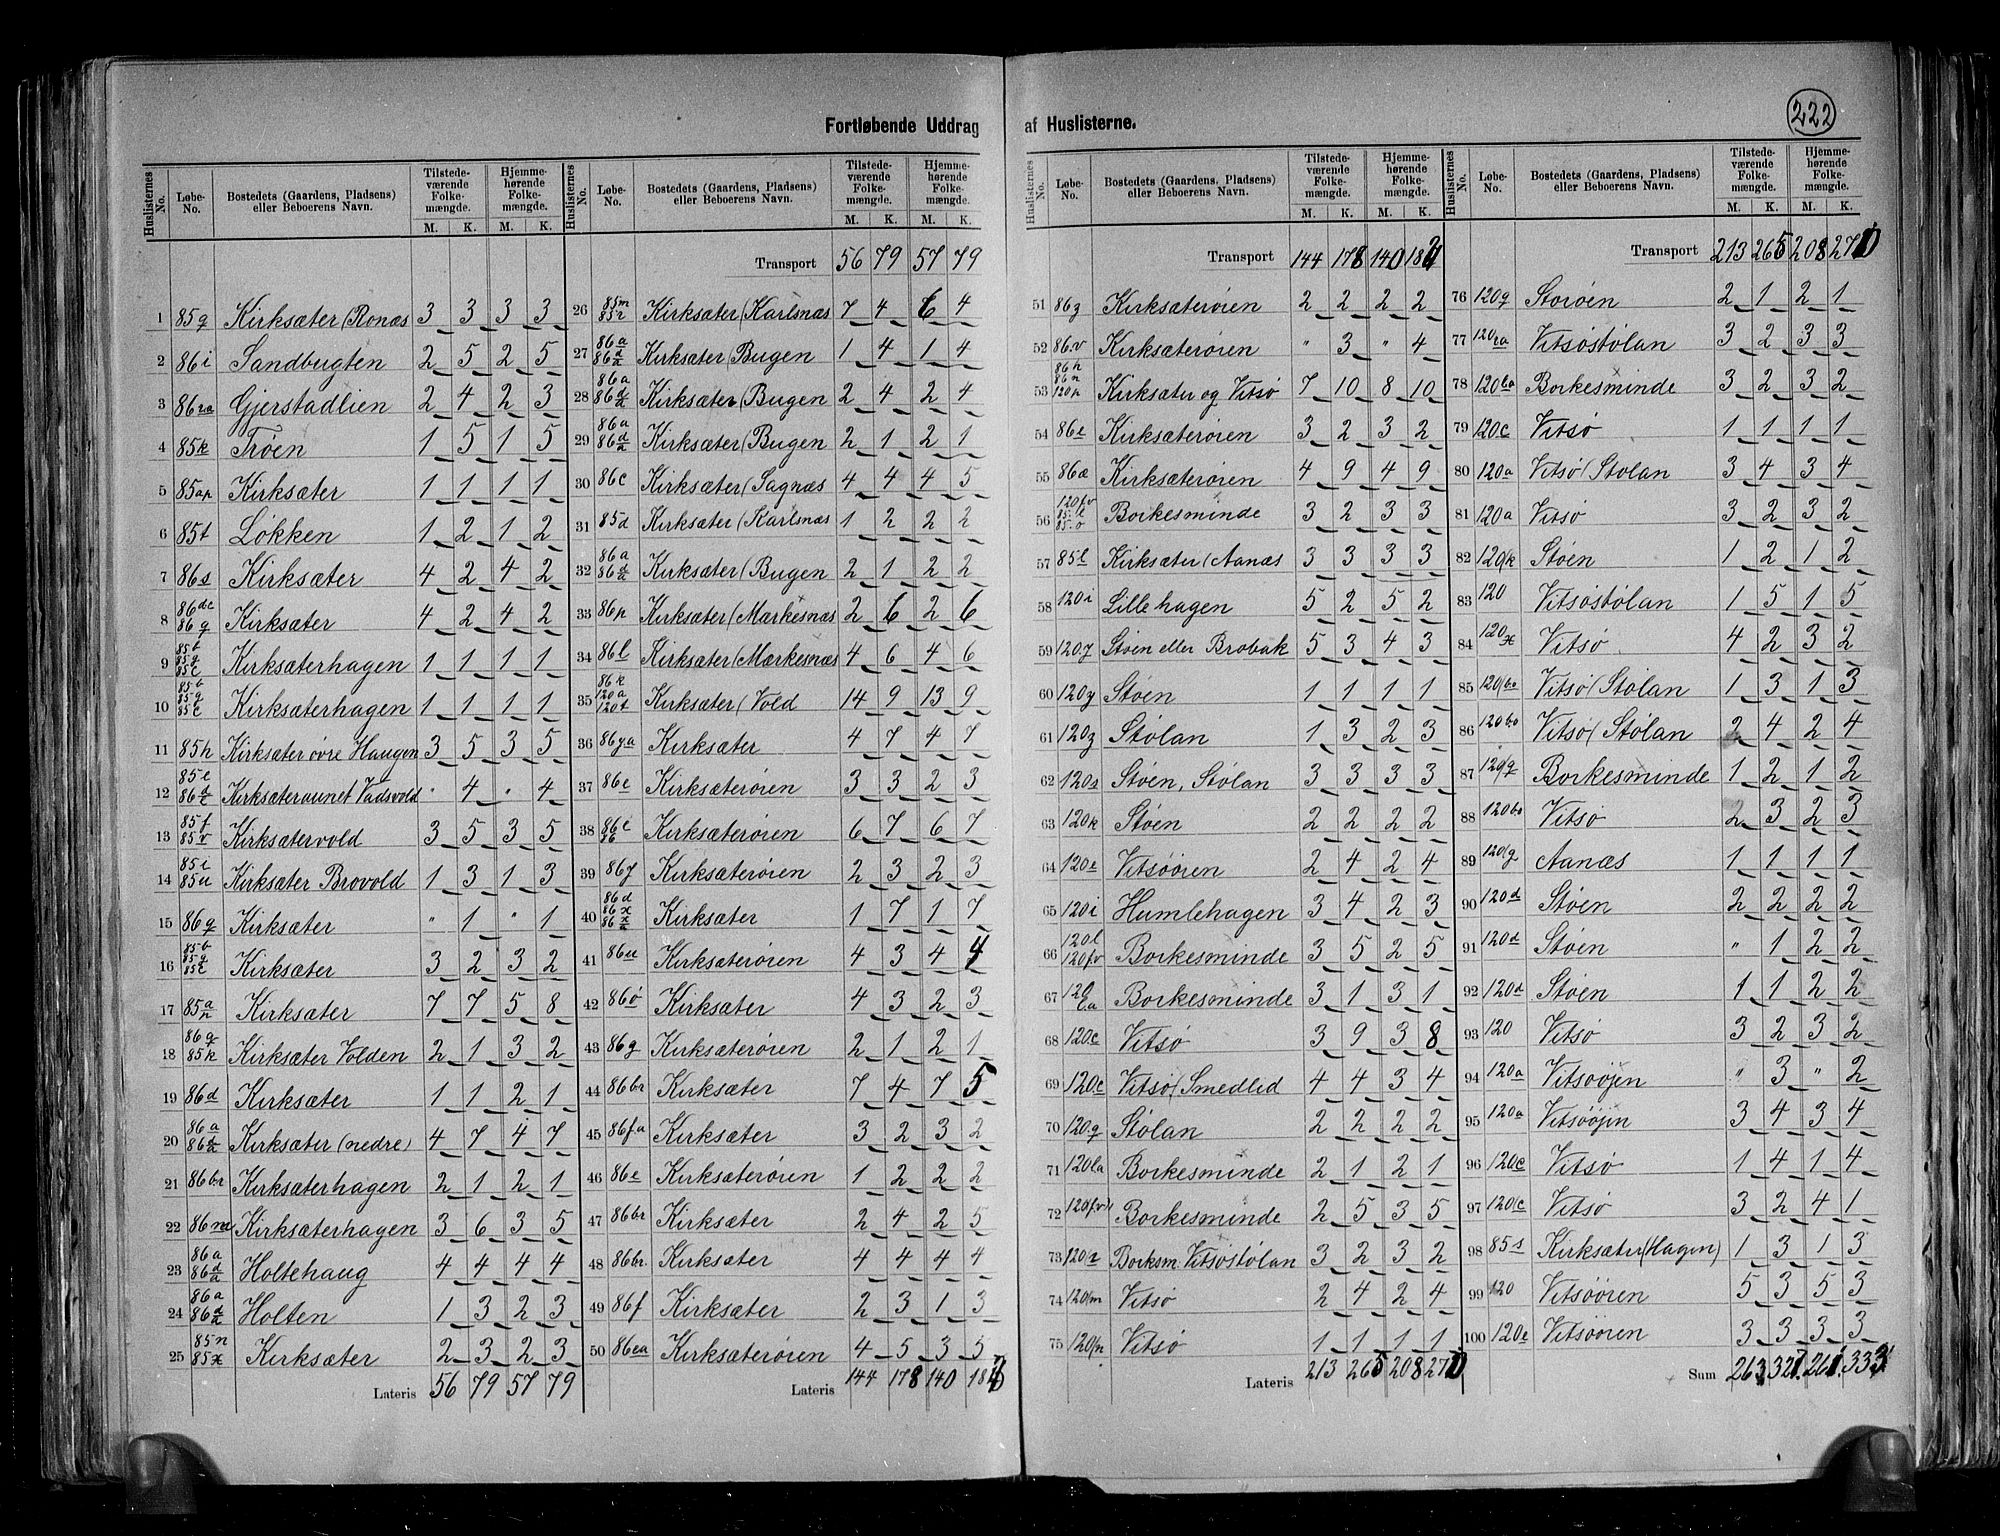 222
Fortløbende Uddrag af Huslisterne.
Huslisternes No. Løbe-No. Bostedets (Gaardens, Pladsens) eller Beboerens Navn. Tilstedeværende Folkemængde. M. K. Hjemmehørende Folkemængde. M. K.
1 85q Kirksæter (Ronæs 3 3 3 3
2 86i Sandbugten 2 5 2 5
3 86ra Gjerstadlien 2 4 2 3
4 85k Trøen 1 5 1 5
5 85ap Kirksæter 1 1 1 1
6 85t Løkken 1 2 1 2
7 86s Kirksæter 4 2 4 2
8 86dc 86q Kirksæter 4 2 4 2
9 85b 85g 85c Kirksæterhagen 1 1 1 1
10 85b 85g 85c Kirksæterhagen 1 1 1 1
11 85h Kirksæter øvre Haugen 3 5 3 5
12 85e 86d Kirksæteraunet Vadsvold " 4 " 4
13 85f 85v Kirksætervold 3 5 3 5
14 85i 85u Kirksæter Brovold 1 3 1 3
15 86q Kirksæter " 1 " 1
16 85b 85g 85c Kirksæter 3 2 3 2
17 85a Kirksæter 7 7 5 8
18 86q 85k Kirksæter Volden 2 1 3 2
19 86d Kirksæter 1 1 2 1
20 86a Kirksæter (nedre) 4 7 4 7
21 86br Kirksæterhagen 2 1 2 1
22 86m Kirksæterhagen 3 6 3 5
23 86a 86d Holtehaug 4 4 4 4
24 86a 86d Holten 1 3 2 3
25 85n 85x Kirksæter 2 3 2 3
Lateris 56 79 57 79
Huslisternes No. Løbe-No. Bostedets (Gaardens, Pladsens) eller Beboerens Navn. Tilstedeværende Folkemængde. M. K. Hjemmehørende Folkemængde. M. K.
Transport 56 79 57 79
26 85m 85r Kirksæter (Karlsnæs 7 4 6 4
27 86a 86d Kirksæter (Bugen 1 4 1 4
28 86a 86d Kirksæter (Bugen 2 4 2 4
29 86a 86d Kirksæter (Bugen 2 1 2 1
30 86c Kirksæter (Sagnæs 4 4 4 5
31 85d Kirksæter (Karlsnæs 1 2 2 2
32 86a 86d Kirksæter (Bugen 2 1 2 2
33 86p Kirksæter (Mærkesnæs 2 6 2 6
34 86l Kirksæter (Mærkesnæs 4 6 4 6
35 86k 120a 120t Kirksæter (Vold 14 9 13 9
36 86ya Kirksæter 4 7 4 7
37 86e Kirksæterøien 3 3 2 3
38 86c 86 Kirksæterøien 6 7 6 7
39 86y Kirksæterøien 2 3 2 3
40 86d 86x Kirksæter 1 7 1 7
41 86u Kirksæterøien 4 3 4 4
42 86ø Kirksæter 4 3 2 3
43 86g Kirksæterøien 2 1 2 1
44 86br Kirksæter 7 4 7 5
45 86fa Kirksæter 3 2 3 2
46 86e Kirksæterøien 1 2 2 2
47 86br Kirksæter 2 4 2 5
48 86br. Kirksæter 4 4 4 4
49 86f Kirksæter 2 3 1 3
50 86ea Kirksæterøien 4 5 3 5
Lateris 144 178 140
Huslisternes No. Løbe-No. Bostedets (Gaardens, Pladsens) eller Beboerens Navn. Tilstedeværende Folkemængde. M. K. Hjemmehørende Folkemængde. M. K.
Transport 144 178 140
51 86z Kirksæterøien 2 2 2 2
52 86v Kirksæterøien " 3 " 4
53 86h 86n 120p Kirksæter og Vitsø 7 10 8 10
54 86e Kirksæterøien 3 2 3 2
55 86æ Kirksæterøien 4 9 4 9
56 120fv 85l 85o Borkesminde 3 2 3 3
57 85l Kirksæter (Aanæs 3 3 3 3
58 120i Lillehagen 5 2 5 2
59 120y Støen eller Brobak 5 3 4 3
60 120y Støen 1 1 1 1
61 120z Stølan 1 3 2 3
62 120s Støen, Stølan 3 3 3 3
63 120k Støen 2 2 2 2
64 120e Vitsøøren 2 4 2 4
65 120i Humlehagen 3 4 2 3
66 120l 120fv Borkesminde 3 5 2 5
67 120 Borkesminde 3 1 3 1
68 120c Vitsø 3 9 3 8
69 120c Vitsø (Smedlid 4 4 3 4
70 120q Stølan 2 2 2 2
71 120la Borkesminde 2 1 2 1
72 120fv Borkesminde 2 5 3 5
73 120r Borksm. Vitsøstølan 3 2 3 2
74 120m Vitsø 2 4 2 4
75 120n Vitsø 1 1 1 1
Lateris 213 265 208 270
Huslisternes No. Løbe-No. Bostedets (Gaardens, Pladsens) eller Beboerens Navn. Tilstedeværende Folkemængde. M. K. Hjemmehørende Folkemængde. M. K.
Transport 213 265 208 270
76 120g Storøen 2 1 2 1
77 120ra Vitsøstølan 3 2 3 3
78 120ba Borkesminde 3 2 3 2
79 120c Vitsø 1 1 1 1
80 120a Vitsø (Stølan 3 4 3 4
81 120a Vitsø 3 2 3 2
82 120k Støen 1 2 1 2
83 120 Vitsøstølan 1 5 1 5
84 120x Vitsø 4 2 3 2
85 120bo Vitsø (Stolan 1 3 1 3
86 120bo Vitsø (Stølan 2 4 2 4
87 120g Borkesminde 1 2 1 2
88 120bo Vitsø 2 3 2 3
89 120g Aanæs 1 1 1 1
90 120d Støen 2 2 2 2
91 120d Støen " 1 2 2
92 120d Støen 1 1 2 2
93 120 Vitsø 3 2 3 2
94 120a Vitsøøjen " 3 " 2
95 120a Vitsøøjin 3 4 3 4
96 120c Vitsø 1 4 1 4
97 120c Vitsø 3 2 4 1
98 85s Kirksæter (Hagen) 1 3 1 3
99 120 Vitsøøren 5 3 5 3
100 120e Vitsøøren 3 3 3 3
Sum 263 327. 261. 333